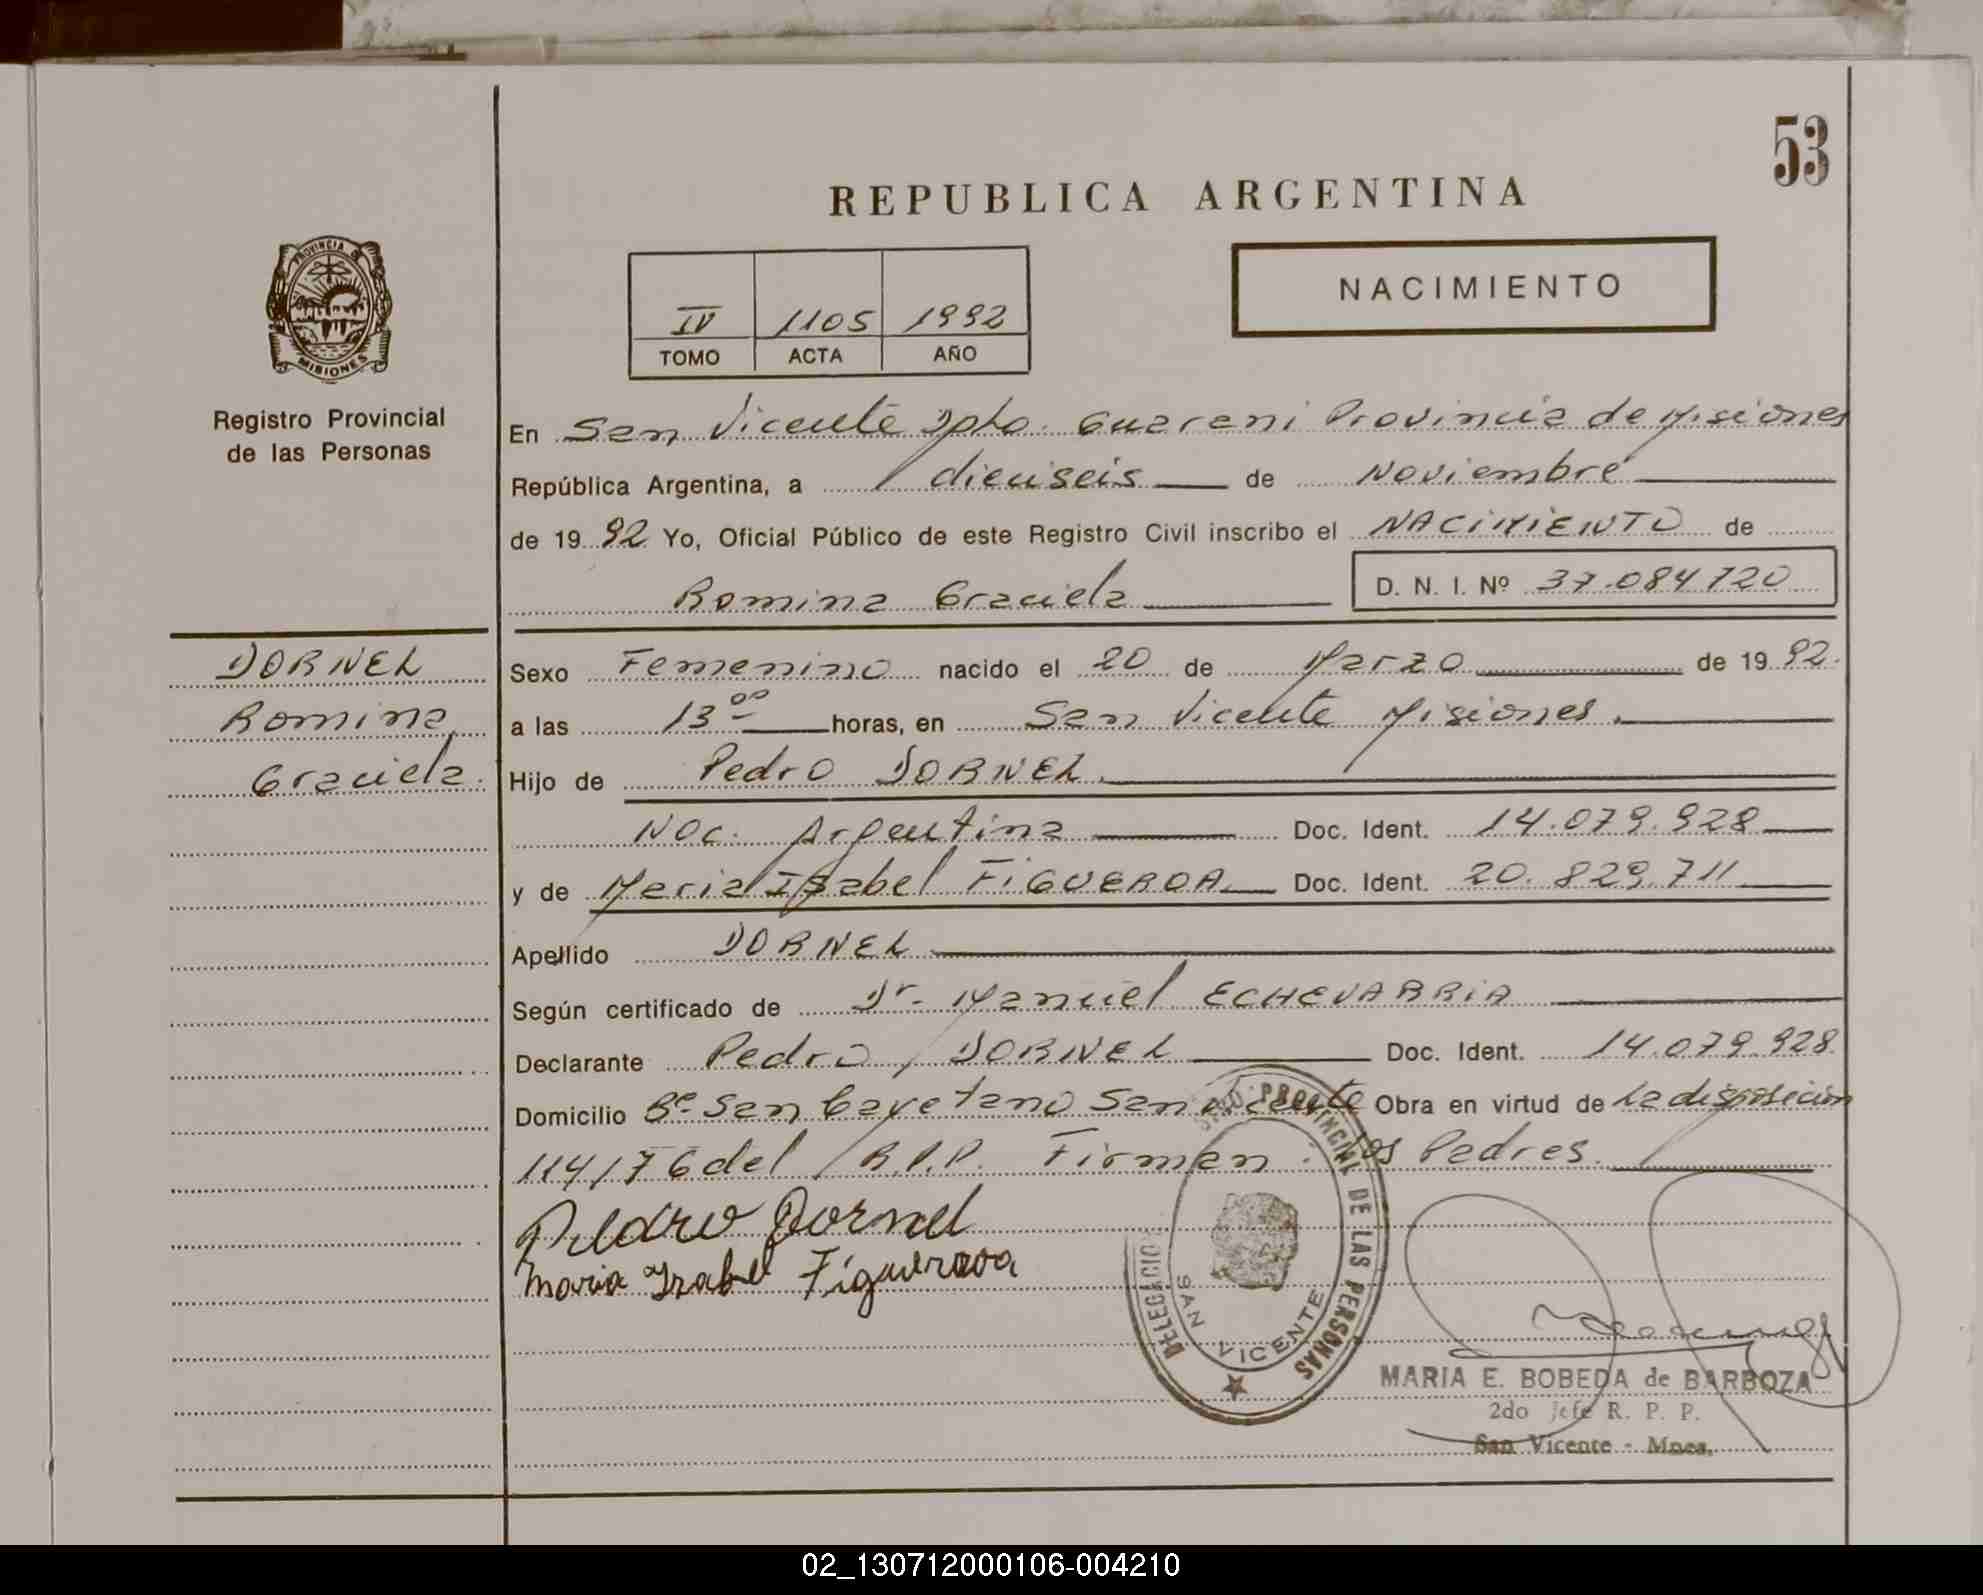 53
REPUBLICA ARGENTINA
PROVINCIA DE
MISIONES
Registro Provincial
de las Personas
NACIMIENTO
IV 1105 1992
TOMO ACTA AÑO
En San Vicente Dpto. Guarani Provincia de Misiones
República Argentina, a dieciseis de Noviembre
de 1992 Yo, Oficial Público de este Registro Civil inscribo el NACIMIENTO de
Romina Graciela D. N. I. Nº 37.084.720
DORNEL
Romina
Graciela.
Sexo Femenino nacido el 20 de Marzo de 1992.
a las 13 00 horas, en San Vicente Misiones.
Hijo de Pedro DORNEL.
Nac. Argentina Doc. Ident. 14.079.928
y de Maria Isabel FIGUEROA Doc. Ident. 20.829.711
Apellido DORNEL
Según certificado de Dr. Manuel ECHEVARRIA
Declarante Pedro DORNEL Doc. Ident. 14.079.928
Domicilio Bº San Cayetano San Vicente Obra en virtud de La disposicion
114/76 del R.P.P. Firman: los Padres.
Pedro Dornel
Maria Izabel Figueroa
PROVINCIAL DE LAS PERSONAS
DELEGACIO
SAN VICENTE
MARIA E. BOBEDA de BARBOZA
2do Jefe R. P. P.
San Vicente - Mnes.
02_130712000106-004210